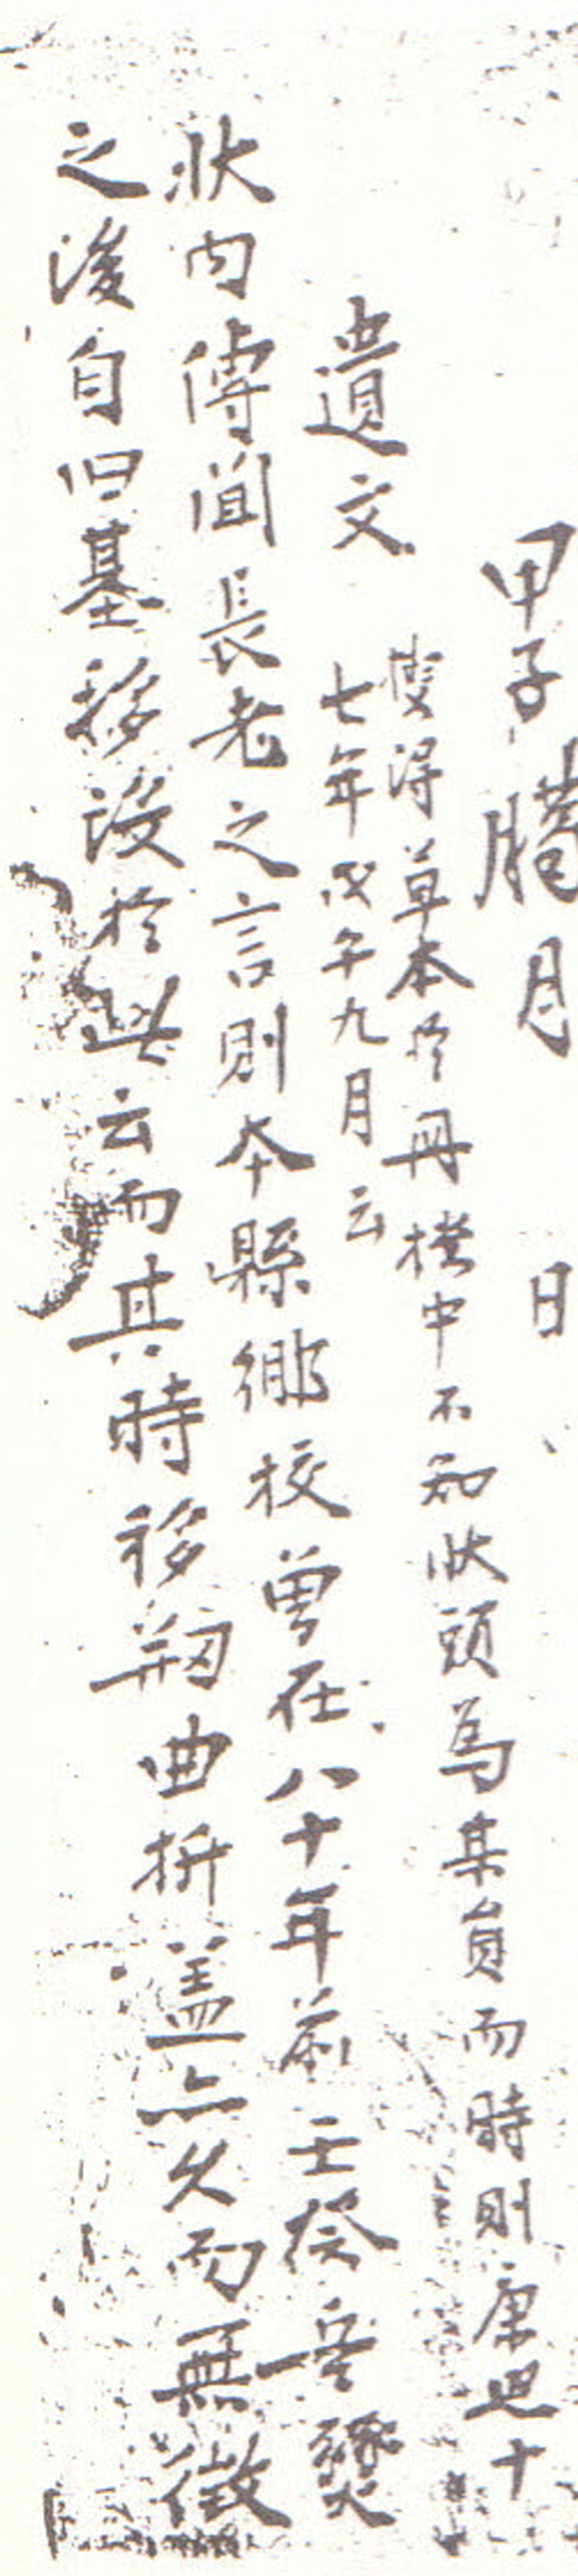 甲子臘月 日
遺文 搜得草本於冊樻中不知狀頭爲某員而時則康熙十
七年戊午九月云
狀內傳聞長老之言則本縣鄕校曾在八十年前壬癸兵燹
之後自旧墓移設於此云而其時移刱曲折盖亦久而無徵